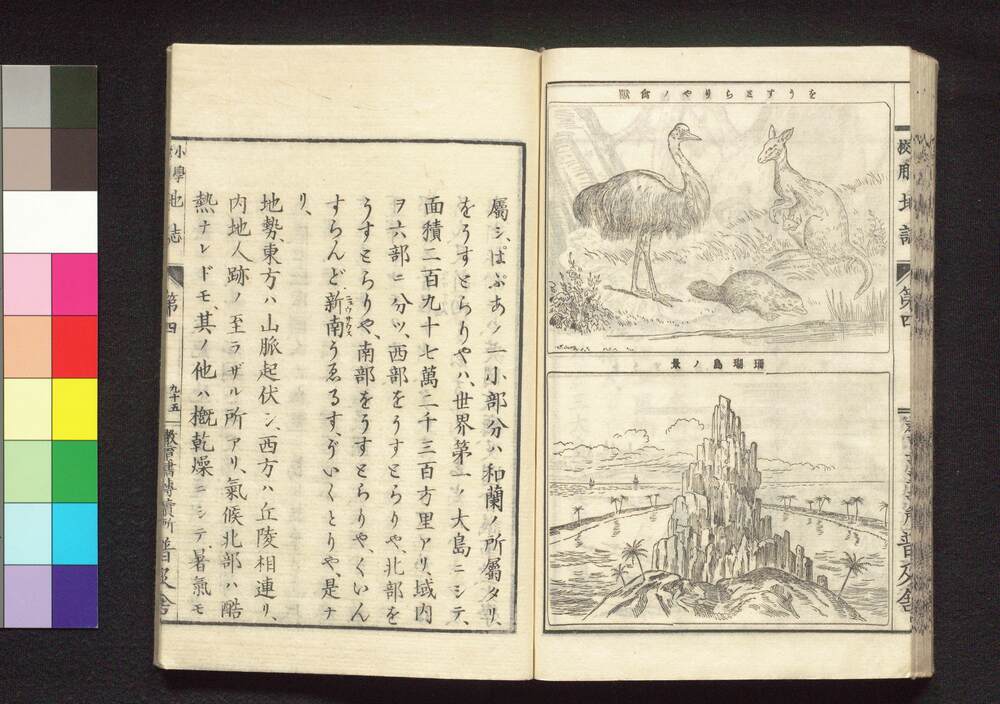 をうすとらりやノ禽獸
珊瑚島ノ景
地誌
第四
普及舍
屬シ、ぱぷあノ一小部分ハ和蘭ノ所屬タリ、
をうすとらりやハ、世界第一ノ大島ニシテ、
面積二百九十七萬二千三百方里アリ、域内
ヲ六部ニ分ツ、西部をうすとらりや、北部を
うすとらりや、南部をうすとらりや、くいん
すらんど、新南うゑるす、ゔいくとりや、是ナ
リ、
地勢、東方ハ山脈起伏シ、西方ハ丘陵相連リ、
内地人跡ノ至ラザル所アリ、氣候北部ハ酷
熱ナレドモ、其ノ他ハ概乾燥ニシテ、暑氣モ
小學地誌
第四
九十五
普及舍